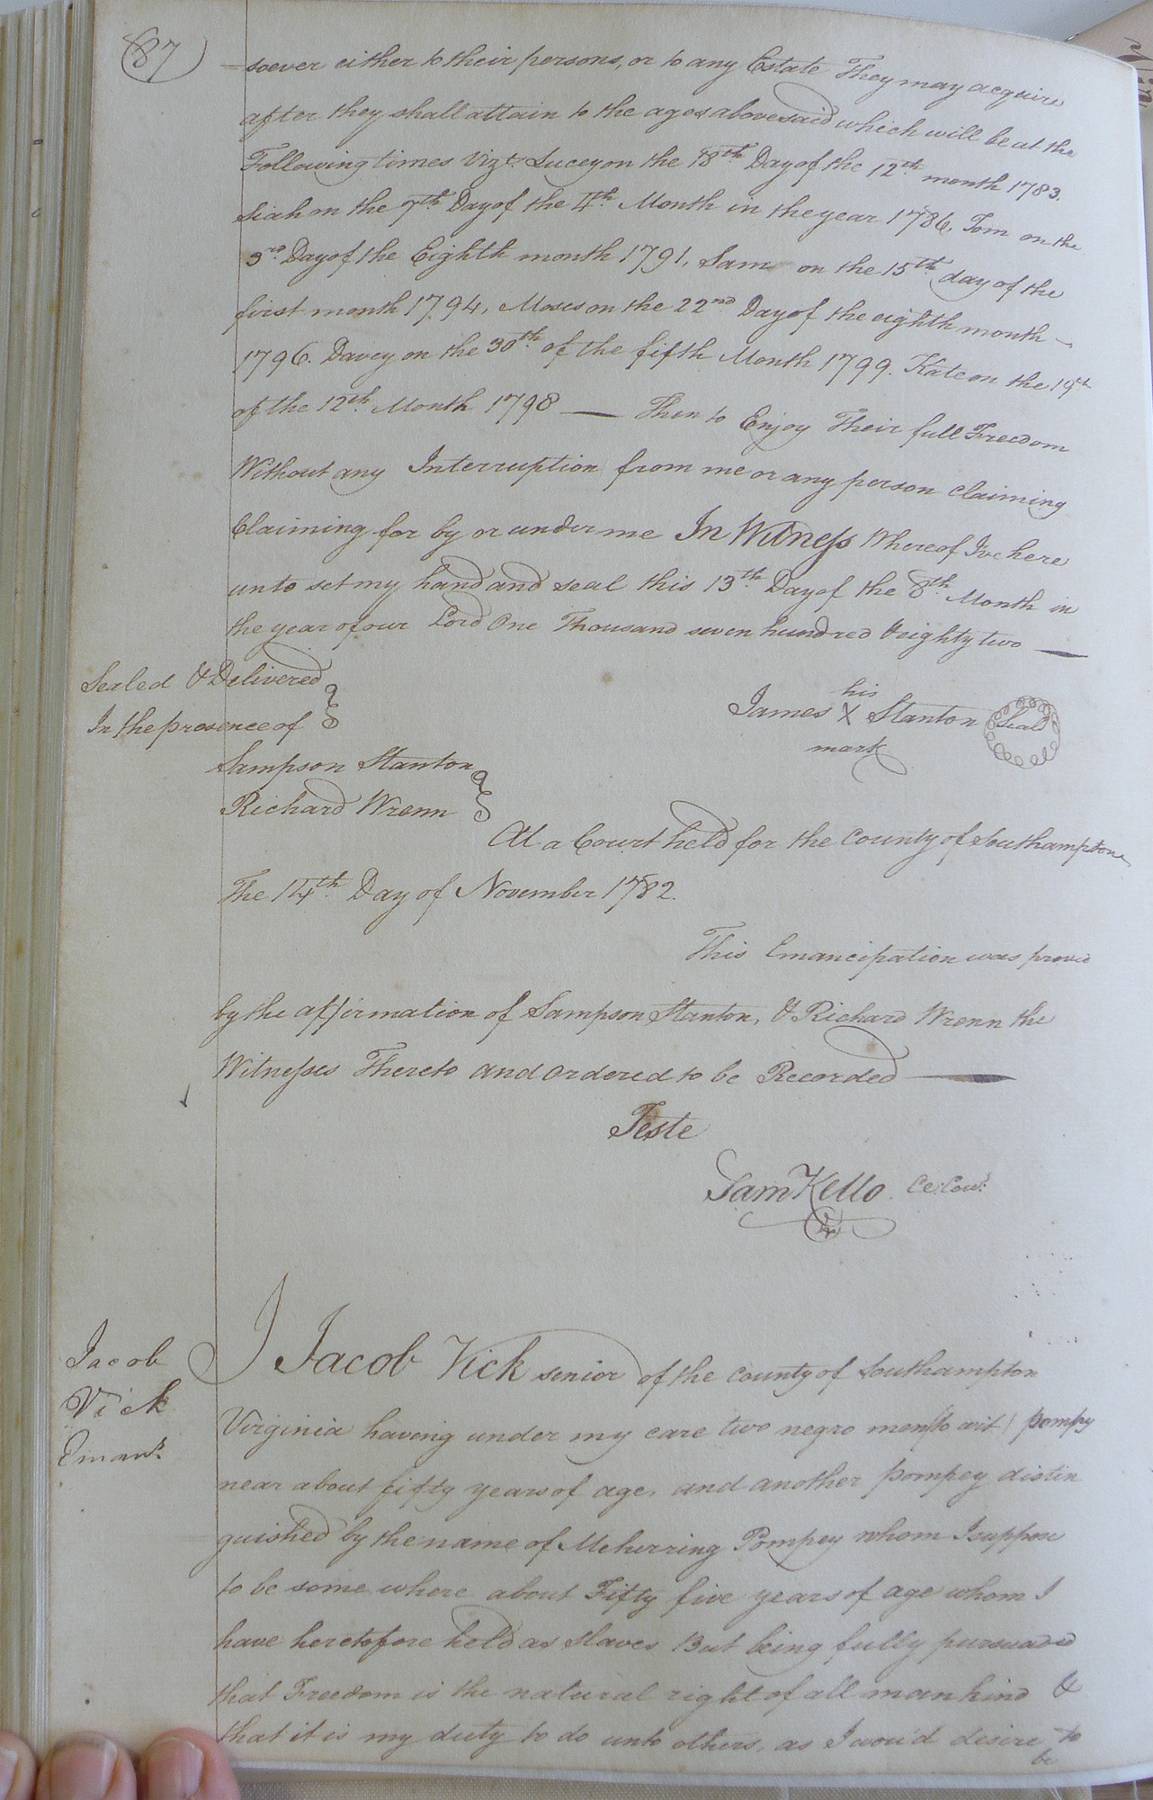 87
soever either to their persons, or to any Estate They may acquire
after they shall attain to the ages abovesaid which will be at the
Following times Vizt. Lucey on the 18th Day of the 12th month 1783.
Siah on the 7th Day of the 4th Month in the year 1786. Tom on the
3rd Day of the Eighth month 1791, Sam on the 15th day of the
first month 1794, Moses on the 22nd Day of the eighth month
1796. Davey on the 30th of the fifth Month 1799. Kate on the 19th
of the 12th Month 1798 — Then to Enjoy Their full Freedom
Without any Interruption from me or any person claiming
Claiming for by or under me In Witness Whereof I've here
unto set my hand and seal this 13th Day of the 8th Month in
the year of our Lord One Thousand seven hundred & eighty two —
Sealed & Delivered
In the presence of
his
James X Stanton Seal
mark
Sampson Stanton
Richard Wrenn
At a Court held for the County of Southampton
The 14th Day of November 1782.
This Emancipation was provd
by the affirmation of Sampson Stanton, & Richard Wrenn the
Witnesses Thereto and ordered to be Recorded —
Teste
Sam Kello Ce: Cou:
Jacob
Vick
Eman:
I Jacob Vick senior of the county of Southampton
Virginia having under my care two negro men (to wit) pompy
near about fifty years of age, and another pompey distin
guished by the name of Meherring Pompey whom I suppose
to be some where about Fifty five years of age whom I
have heretofore held as slaves But being fully pursuaded
that Freedom is the natural right of all mankind &
that it is my duty to do unto others, as I wou'd desire to
be